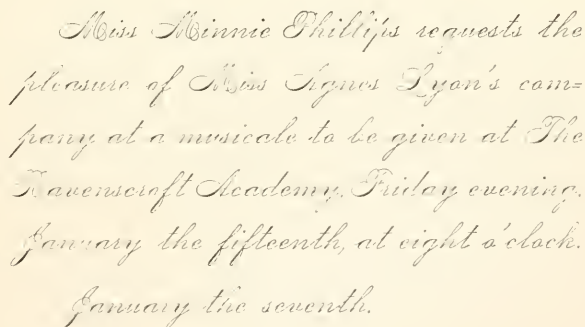 Miss Minnie Phillips requests the
pleasure of Miss Agnes Lyon's com=
pany at a musicale to be given at The
Ravenscroft Academy, Friday evening,
January the fifteenth, at eight o'clock.
January the seventh.